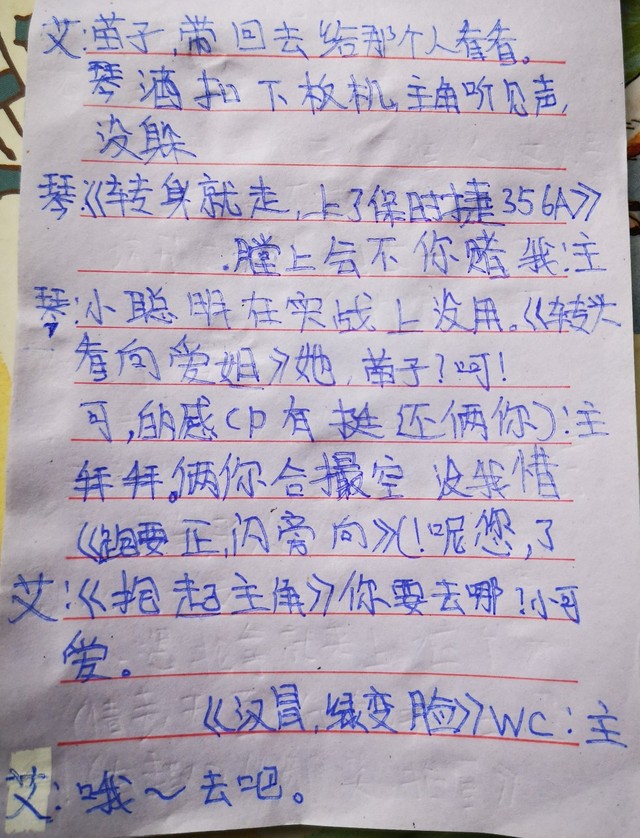 艾:苗子,带回去给那个人看看。
琴酒扣下板机,主角听见声,
没躲
琴:《转身就走,上了保时捷356A》
主:我赌你不会上膛.
琴:小聪明在实战上没用。《转头
看向爱妲》她,苗子?呵!
主:(你俩还挺有cp感的,可
惜我没空撮合你俩。拜拜
了,您呢!)《向旁闪,正要跑》
艾:《抱起主角》你要去哪?小可
爱。
主:WC《脸变绿,冒汉》
艾:哦~去吧。